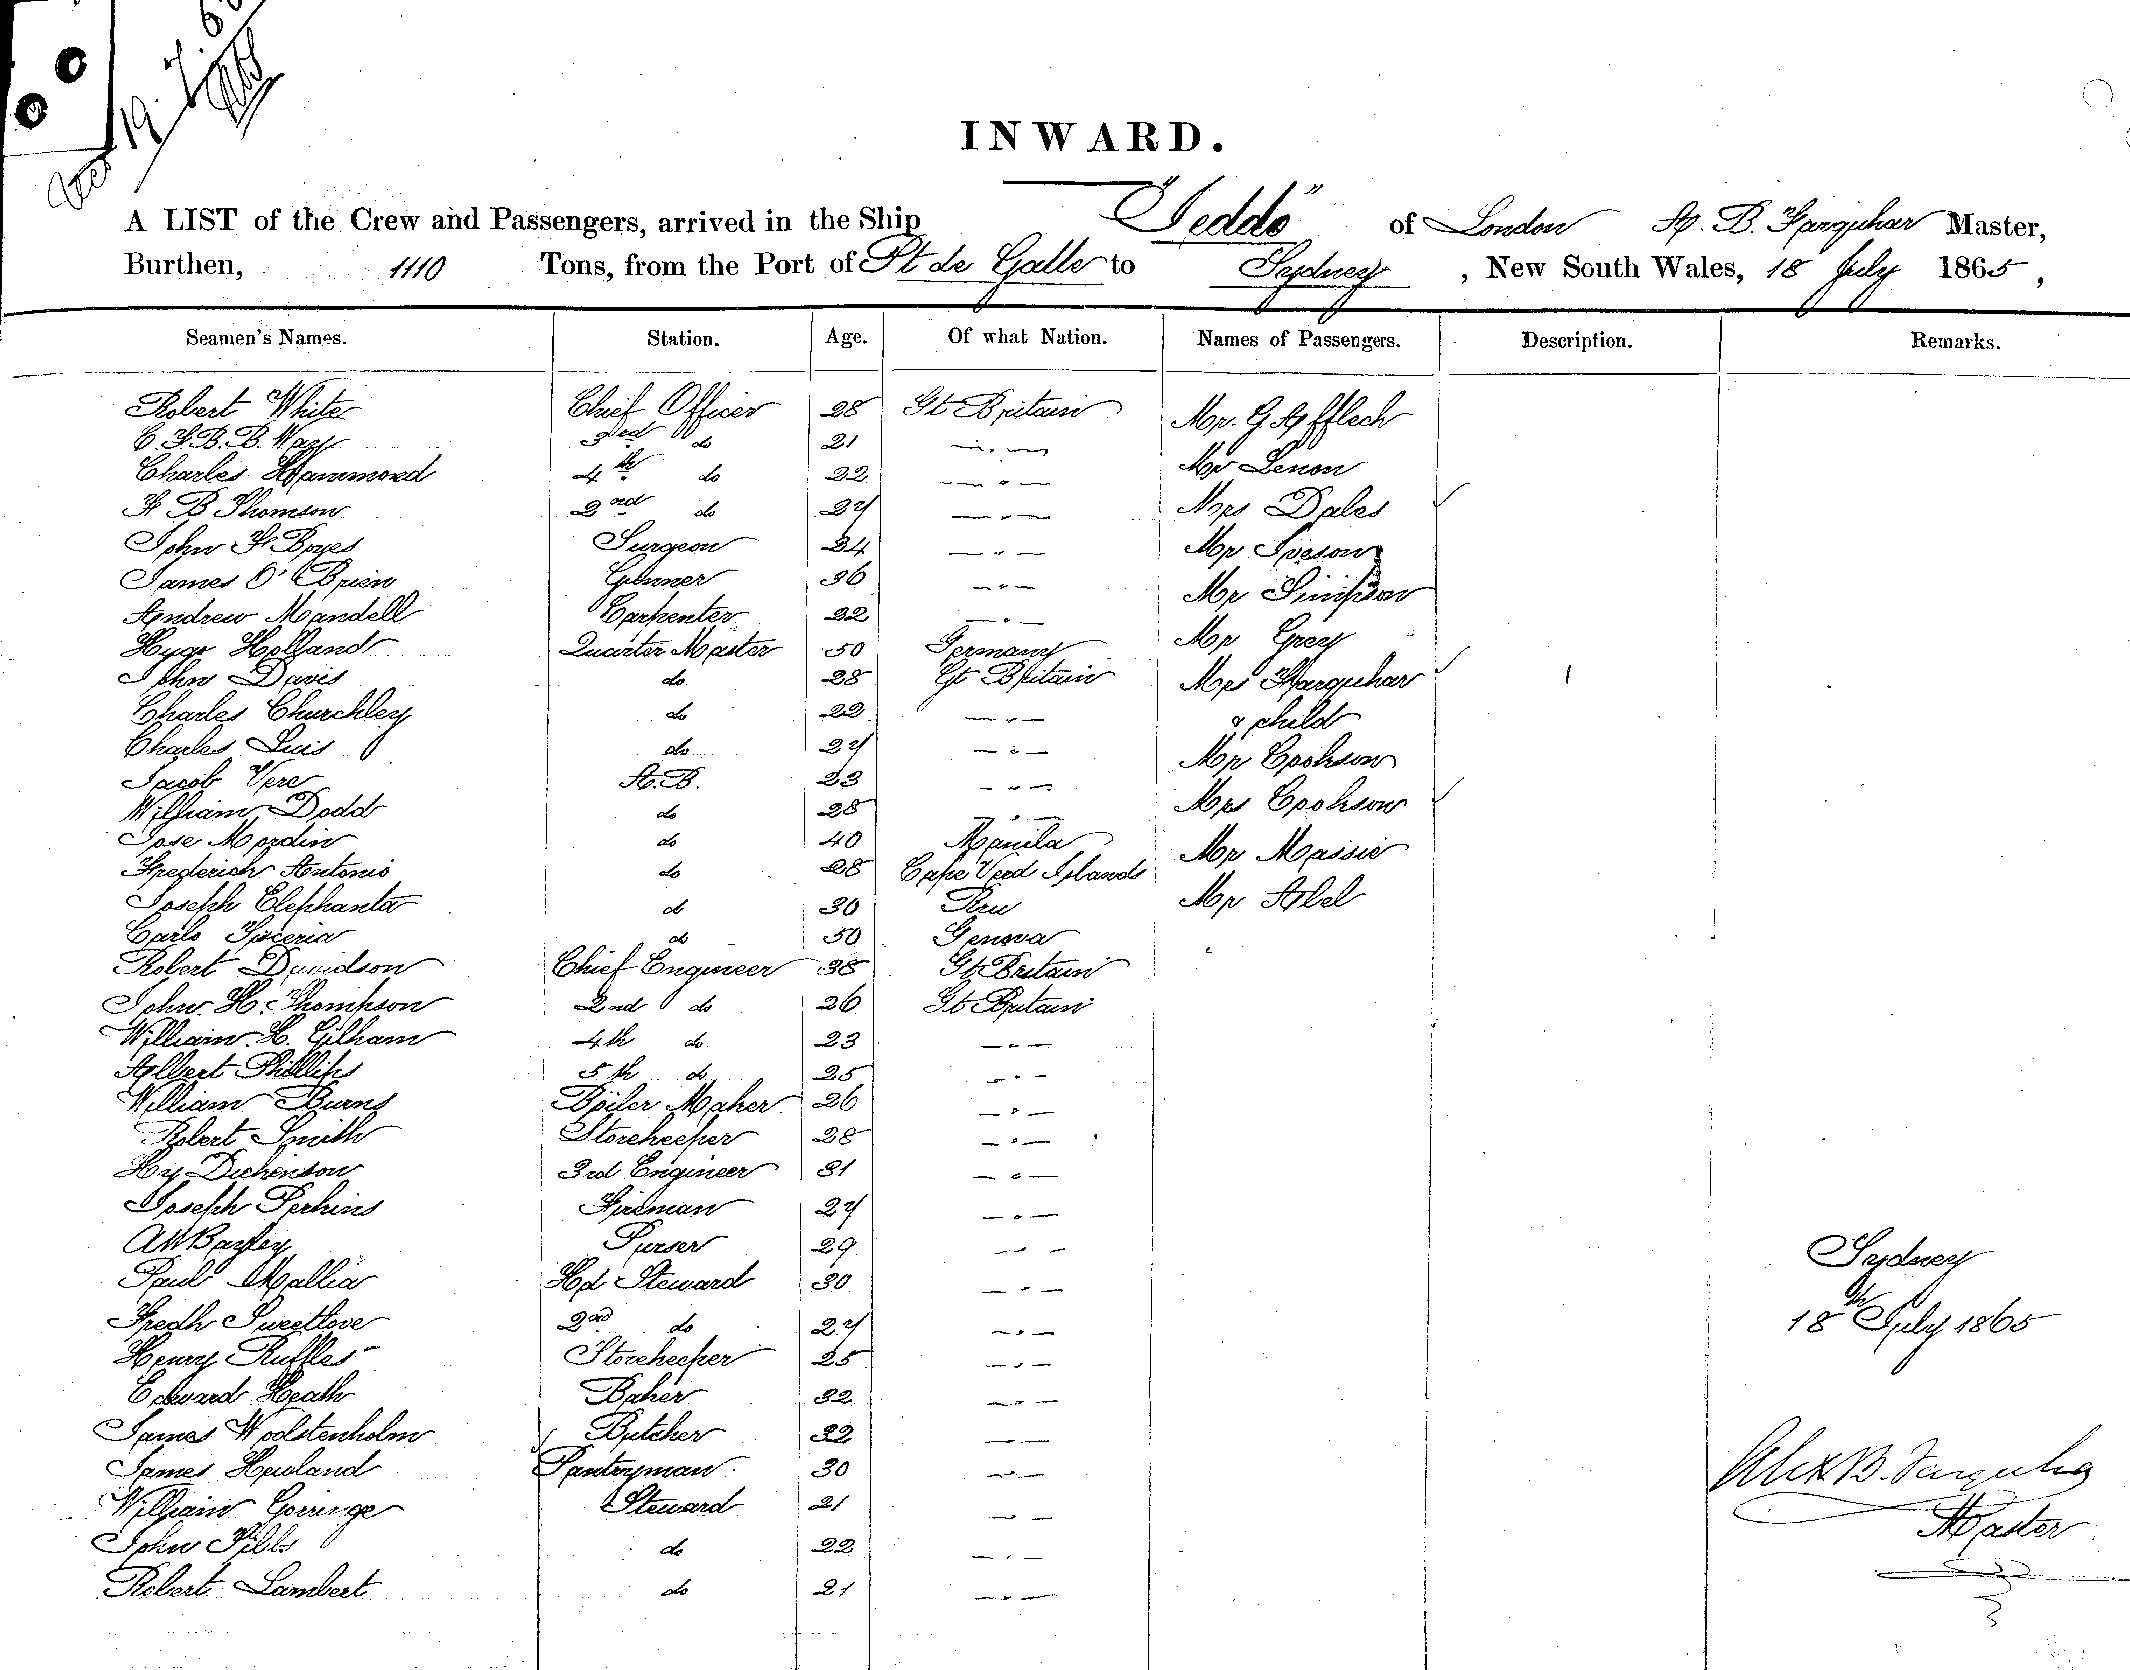 19
INWARD.
A LIST of the Crew and Passengers, arrived in the Ship "Jeddo" of London A. B. Farquhar Master,
Burthen, 1110 Tons, from the Port of Pt de Galle to Sydney, New South Wales, 18 July 1865,
Seamen's Names. Station. Age. Of what Nation. Names of Passengers. Description. Remarks.
Robert White Chief Officer 28 Gt Britain Mr. G Afflech
C. F. B. B. Way 3rd do 21 — " — Mr Lenon
Charles Hammond 4th do 22 — " —
F B Thomson 2nd do 27 — " — Mrs Dales
John F Boyes Surgeon 24 — " — Mr Iveson
James O'Brien Gunner 36 — " — Mr Simpson
Andrew Mandell Carpenter 22 — " —
Hugo Holland Quarter Master 50 Germany Mr Grey
John Davis do 28 Gt Britain Mrs Farquhar
Charles Churchley do 22 — " — & child
Charles Luis do 27 — " — Mr Cookson
Jacob Vere A.B. 23 — " —
William Dodd do 28 — " — Mrs Cookson
Jose Mordin do 40 Manila Mr Massie
Frederick Antonio do 28 Cape Verd Islands
Joseph Elephanta do 30 Mr Abel
Carlo do 50 Genova
Robert Davidson Chief Engineer 38 Gt Britain
John H. Thompson 2nd do 26 Gt Britain
William H. Gilham 4th do 23 — " —
Albert Phillips 5th do 25 — " —
William Burns Boiler Maker 26 — " —
Robert Smith Storekeeper 28 — " —
Hy Dickenson 3rd Engineer 31 — " —
Joseph Perkins Fireman 27 — " —
AW Bayley Purser 29 — " —
Paul Mallia Hd Steward 30 — " —
Sydney
Fredk Sweetlove 2nd do 27 — " —
18th July 1865
Henry Ruffles Storekeeper 25 — " —
Edward Heath Baker 32 — " —
James Woolstenholm Butcher 22 — " —
James Howland Pantryman 30 — " —
Alex B. Farquhar
William Gorringe Steward 21 — " —
Master
John Tibbs do 22 — " —
Robert Lambert do 21 — " —